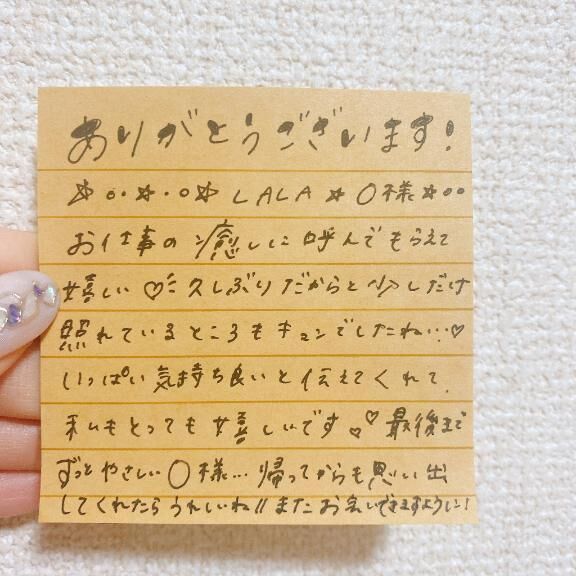 ありがとうございます!
☆・・☆・・☆ LALA ☆ ○様☆・・
お仕事の癒しに呼んでもらえて
嬉しい♡ミ 久しぶりだからと少しだけ
照れているところもキュンでしたね…♡
いっぱい気持ち良いと伝えてくれて、
私もとっても嬉しいです♡♡ 最後まで
ずっとやさしい○様… 帰ってからも思い出
してくれたらうれしいね!! またお会いできますように!